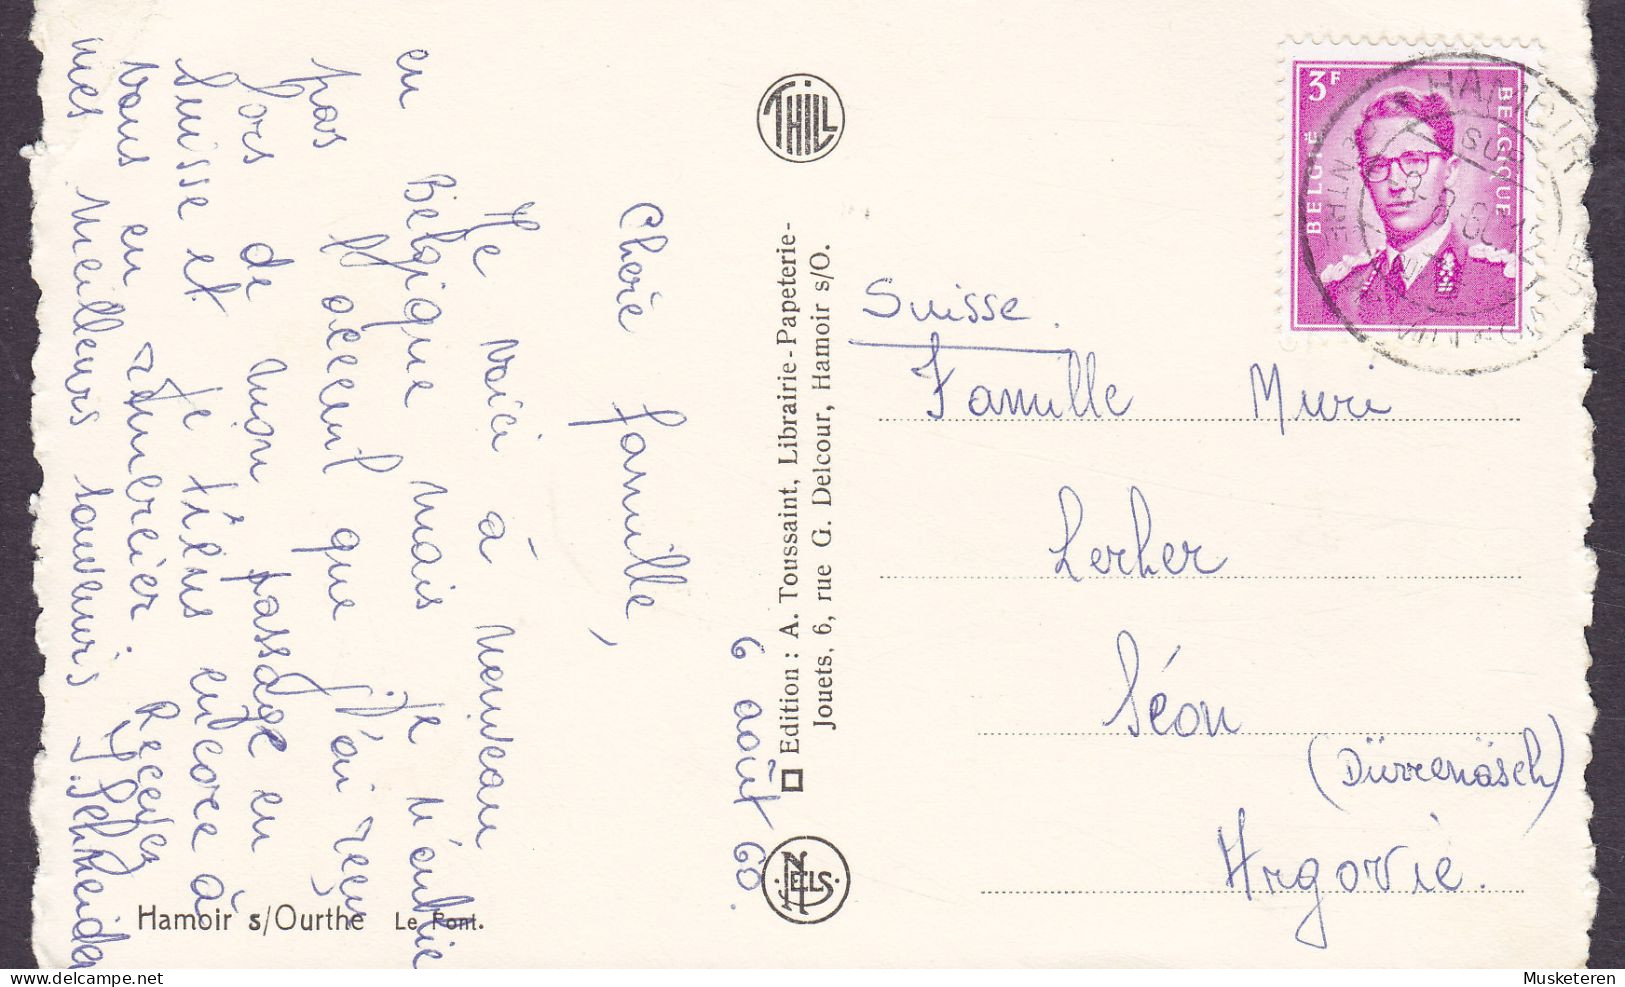 6 août 60.
Chère famille,
Me voici à nouveau
en Belgique mais je n'oublie
pas l'accueil que j'ai reçu
lors de mon passage en
Suisse et je tiens encore à
vous en remercier. Recevez
mes meilleurs souvenirs
J. Schneider
Hamoir s/Ourthe Le Pont.
THILL
Edition : A. Toussaint, Librairie-Papeterie-
Jouets, 6, rue G. Delcour, Hamoir s/O.
NELS
3F
BELGIË
BELGIQUE
HAMOIR
SUR
CENTRE
Suisse.
Famille Muri
Lerher
Séon
(Dürrenäsch)
Argovie.
Musketeren